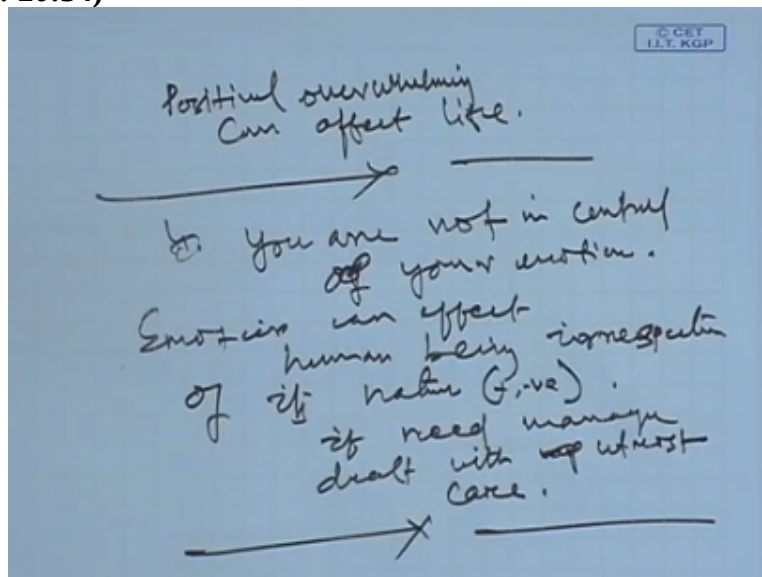 20:54)
© CET
I.I.T. KGP
Positive overwhelming
Can affect life.
You are not in control
of your emotion.
Emotion can affect
human being irrespective
of its nature (+,-ve).
it need manage
dealt with utmost
care.